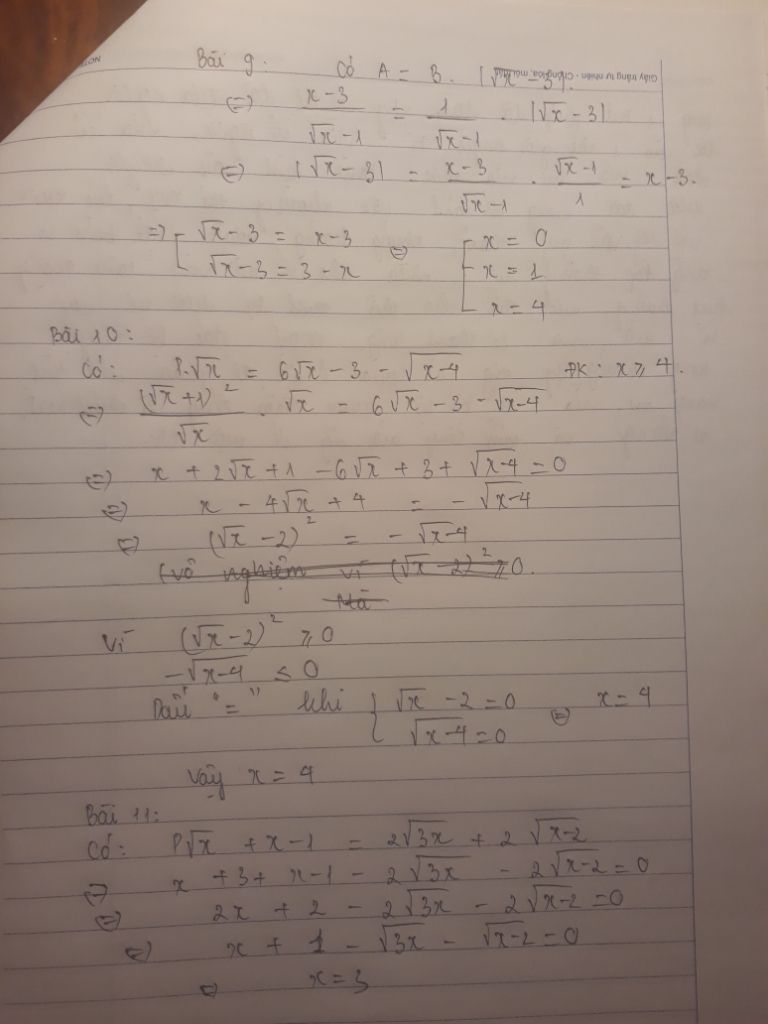 NOT
Giấy trắng tự nhiên - Chống lóa, mỏi mắt
Bài 9: Có A = B. |√x - 3|.
⇔ (x-3)/(√x-1) = 1/(√x-1) . |√x - 3|
⇔ |√x - 3| = (x-3)/(√x-1) . (√x-1)/1 = x-3.
⇒ [ √x - 3 = x-3 ⇔ [ x = 0
√x - 3 = 3 - x x = 1
x = 4
Bài 10:
Có: P.√x = 6√x - 3 - √(x-4) ĐK: x ⩾ 4.
⇔ (√x+1)²/√x . √x = 6√x - 3 - √(x-4)
⇔ x + 2√x + 1 - 6√x + 3 + √(x-4) = 0
⇔ x - 4√x + 4 = - √(x-4)
⇔ (√x - 2)² = - √(x-4)
(vô nghiệm vì (√x - 2)² ⩾ 0.
Mà
Vì (√x - 2)² ⩾ 0
-√(x-4) ≤ 0
Dấu "=" khi { √x - 2 = 0 ⇔ x = 4
√(x-4) = 0
Vậy x = 4
Bài 11:
Có: P√x + x - 1 = 2√3x + 2√(x-2)
⇔ x + 3 + x - 1 - 2√3x - 2√(x-2) = 0
⇔ 2x + 2 - 2√3x - 2√(x-2) = 0
⇔ x + 1 - √3x - √(x-2) = 0
⇔ x = 3